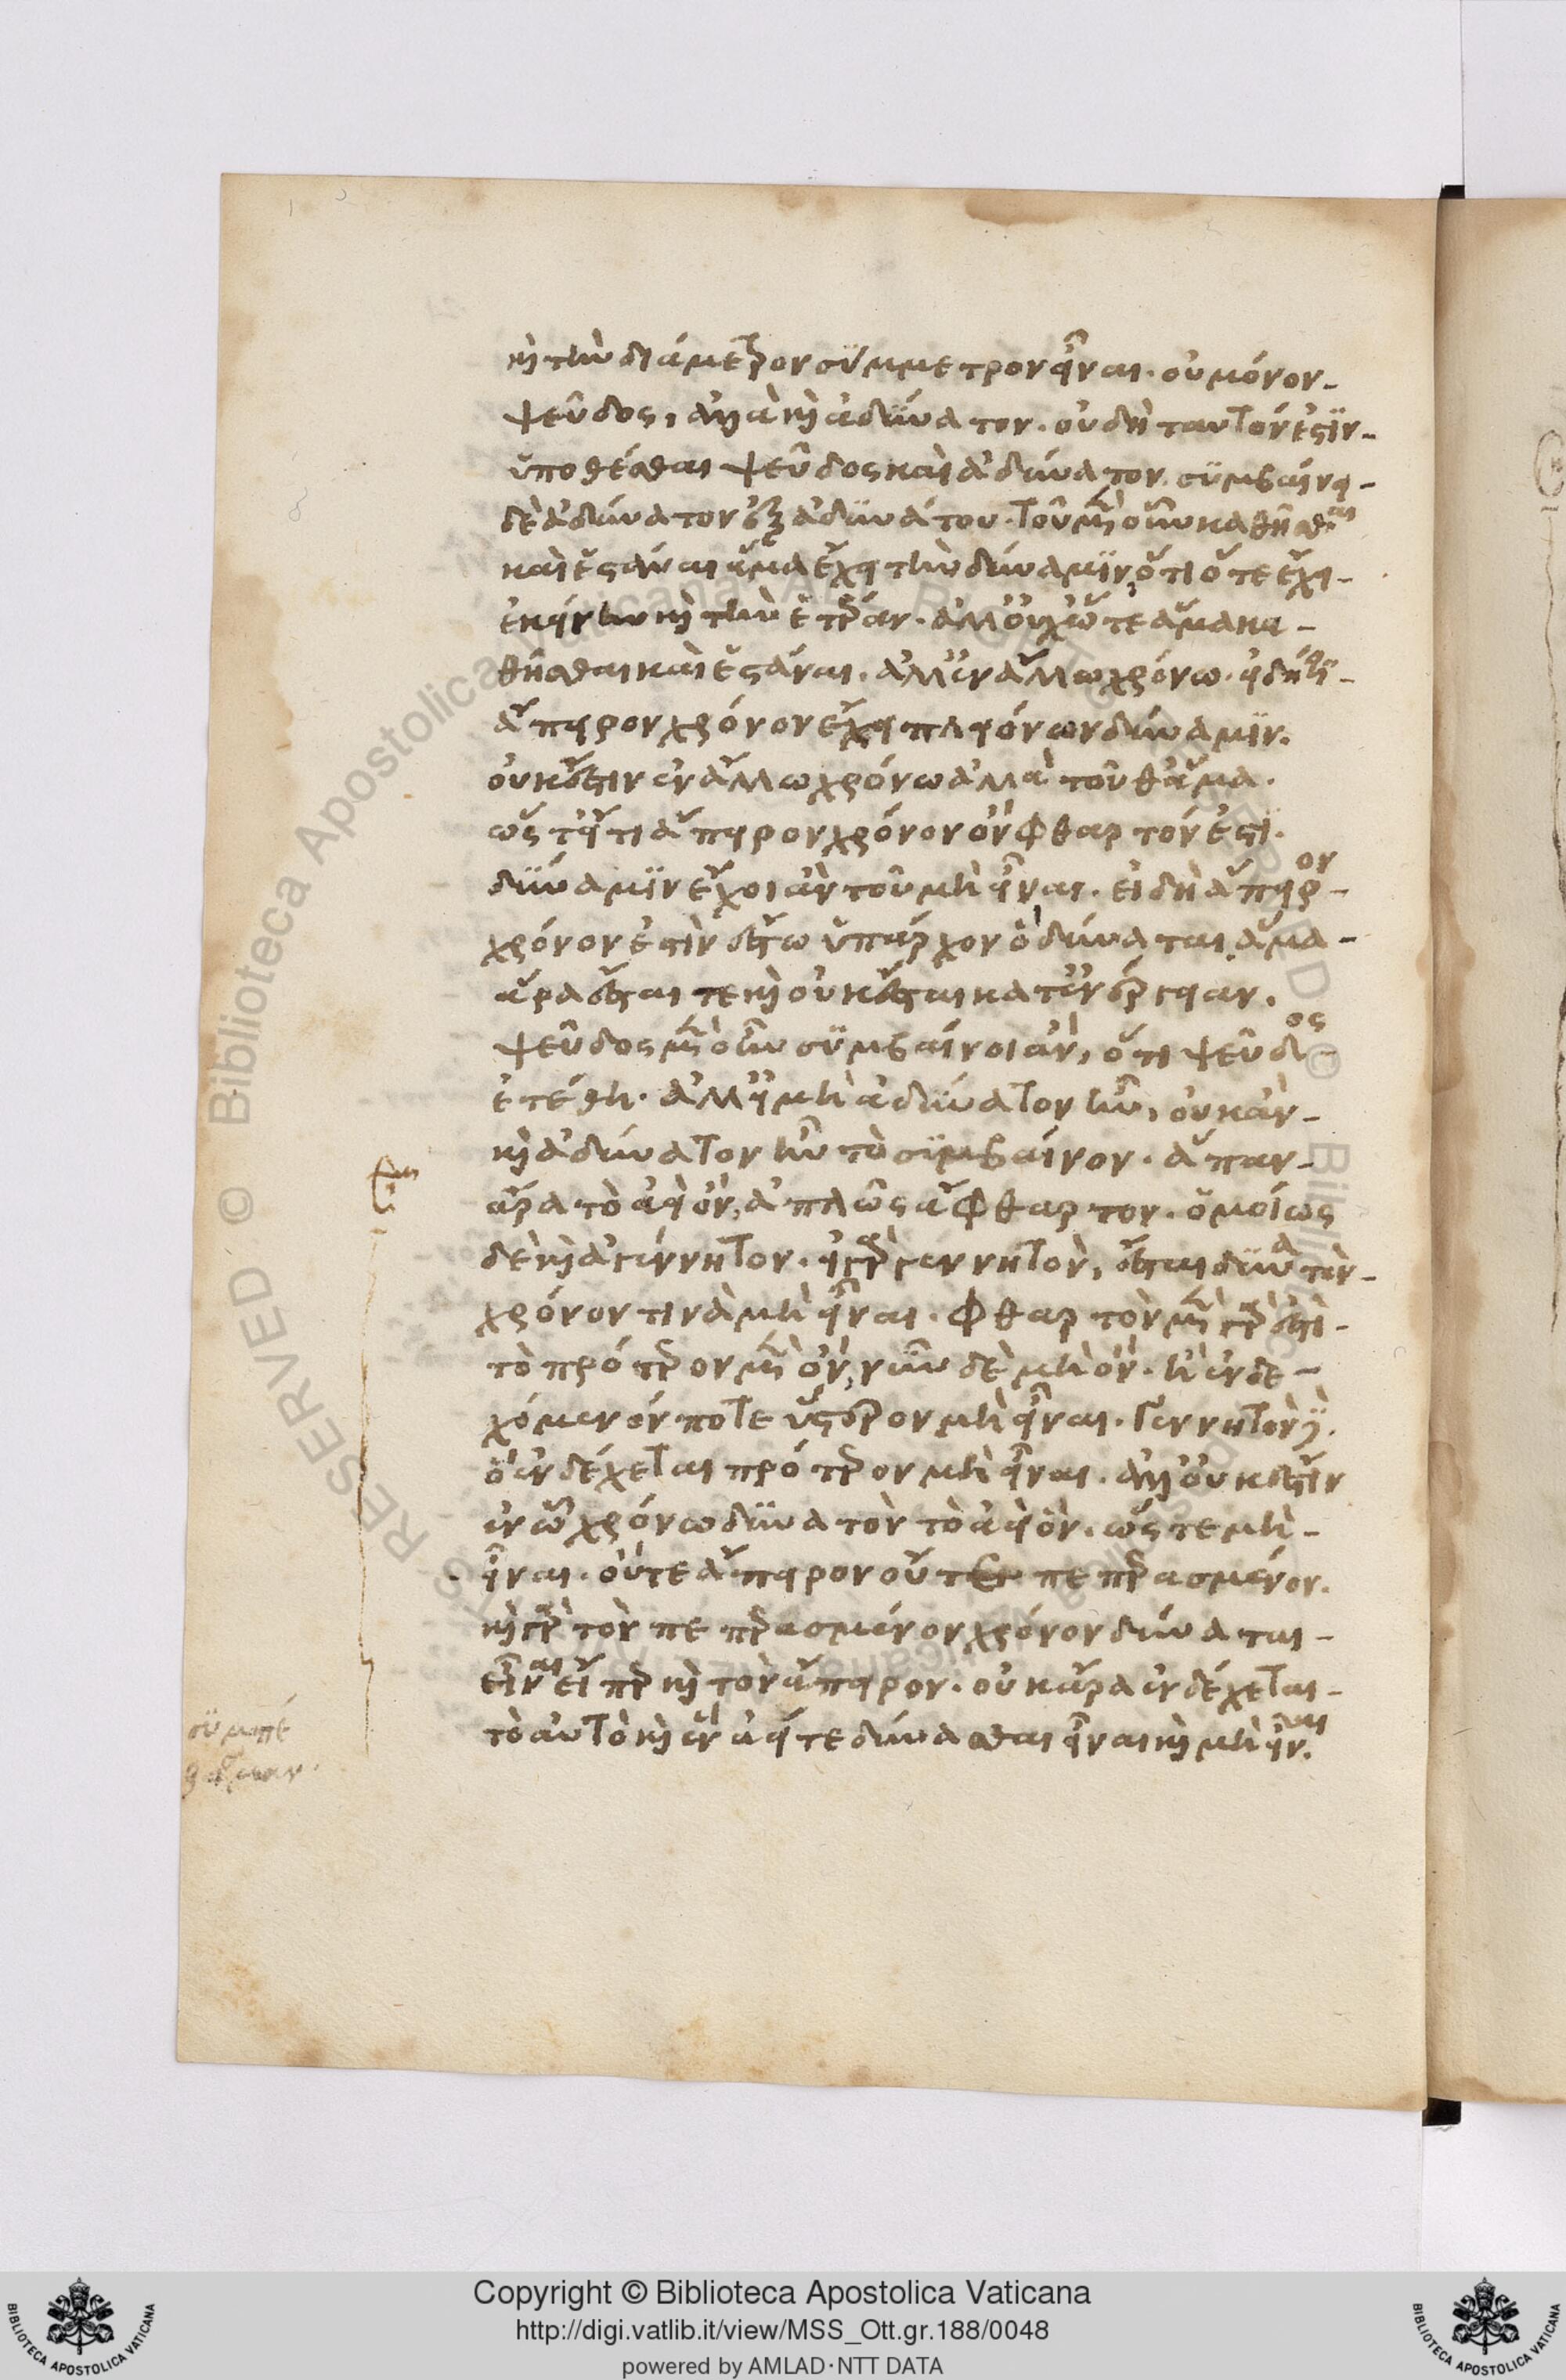 κ(αὶ) τὴν διάμετρον σύμμετρον εἶναι. οὐ μόνον
ψεῦδος, ἀλλὰ κ(αὶ) ἀδύνατον. οὐ δὴ ταυτόν ἐστιν
ὑποθέσθαι ψεῦδος καὶ ἀδύνατον. συμβαίνει
δὲ ἀδύνατον ἐξ ἀδυνάτου. τοῦ μὲν οὖν καθῆσθαι
καὶ ἑστάναι ἅμα ἔχει τὴν δύναμιν, ὅτι ὅτε ἔχει
ἐκείνην κ(αὶ) τὴν ἑτέραν. ἀλλ' οὐχ ὥστε ἅμα κα
θῆσθαι καὶ ἑστάναι. ἀλλ' ἐν ἄλλω χρόνω. εἰ δή τι
ἄπειρον χρόνον ἔχει πλειόνων δύναμιν.
οὐκ ἔστιν ἐν ἄλλω χρόνω ἀλλὰ τοῦθ' ἅμα.
ὥστ' εἴ τι ἄπειρον χρόνον ὂν φθαρτόν ἐστι.
δύναμιν ἔχοι ἂν τοῦ μὴ εἶναι. εἰ δὴ ἄπειρον
χρόνον ἐστὶν ἔστω ὑπάρχον ὃ δύναται. ἅμα
ἄρα ἔσται τε κ(αὶ) οὐκ ἔσται κατ' ἐνέργειαν.
ψεῦδος μὲν οὖν συμβαίνοι ἂν, ὅτι ψεῦδος
ἐτέθη. ἀλλ' εἰ μὴ ἀδύνατον ἦν, οὐκ ἂν
κ(αὶ) ἀδύνατον ἦν τὸ συμβαῖνον. ἅπαν
ἄρα τὸ ἀεὶ ὄν, ἁπλῶς ἄφθαρτον. ὁμοίως
δὲ κ(αὶ) ἀγέννητον. εἰ γὰρ γεννητὸν, ἔσται δυνατὸν
χρόνον τινὰ μὴ εἶναι. φθαρτὸν μὲν γάρ ἐστι
τὸ πρότερον μὲν ὂν, νῦν δὲ μὴ ὂν. ἢ ἐνδε
χόμενόν ποτε ὕστερον μὴ εἶναι. γεννητὸν δὲ
ὃ ἐνδέχεται πρότερον μὴ εἶναι. ἀλλ' οὐκ ἔστιν
ἐν ᾧ χρόνω δυνατὸν τὸ ἀεὶ ὂν. ὥστε μὴ
εἶναι. οὔτε ἄπειρον οὔτε πεπερασμένον.
κ(αὶ) γὰρ τὸν πεπερασμένον χρόνον δύναται
εἶναι εἴπερ κ(αὶ) τὸν ἄπειρον. οὐκ ἄρα ἐνδέχεται
τὸ αὐτὸ κ(αὶ) ἓν ἀεί τε δύνασθαι εἶναι κ(αὶ) μὴ εἶναι.
συμπέ
ρασμα
Copyright © Biblioteca Apostolica Vaticana
http://digi.vatlib.it/view/MSS_Ott.gr.188/0048
powered by AMLAD·NTT DATA